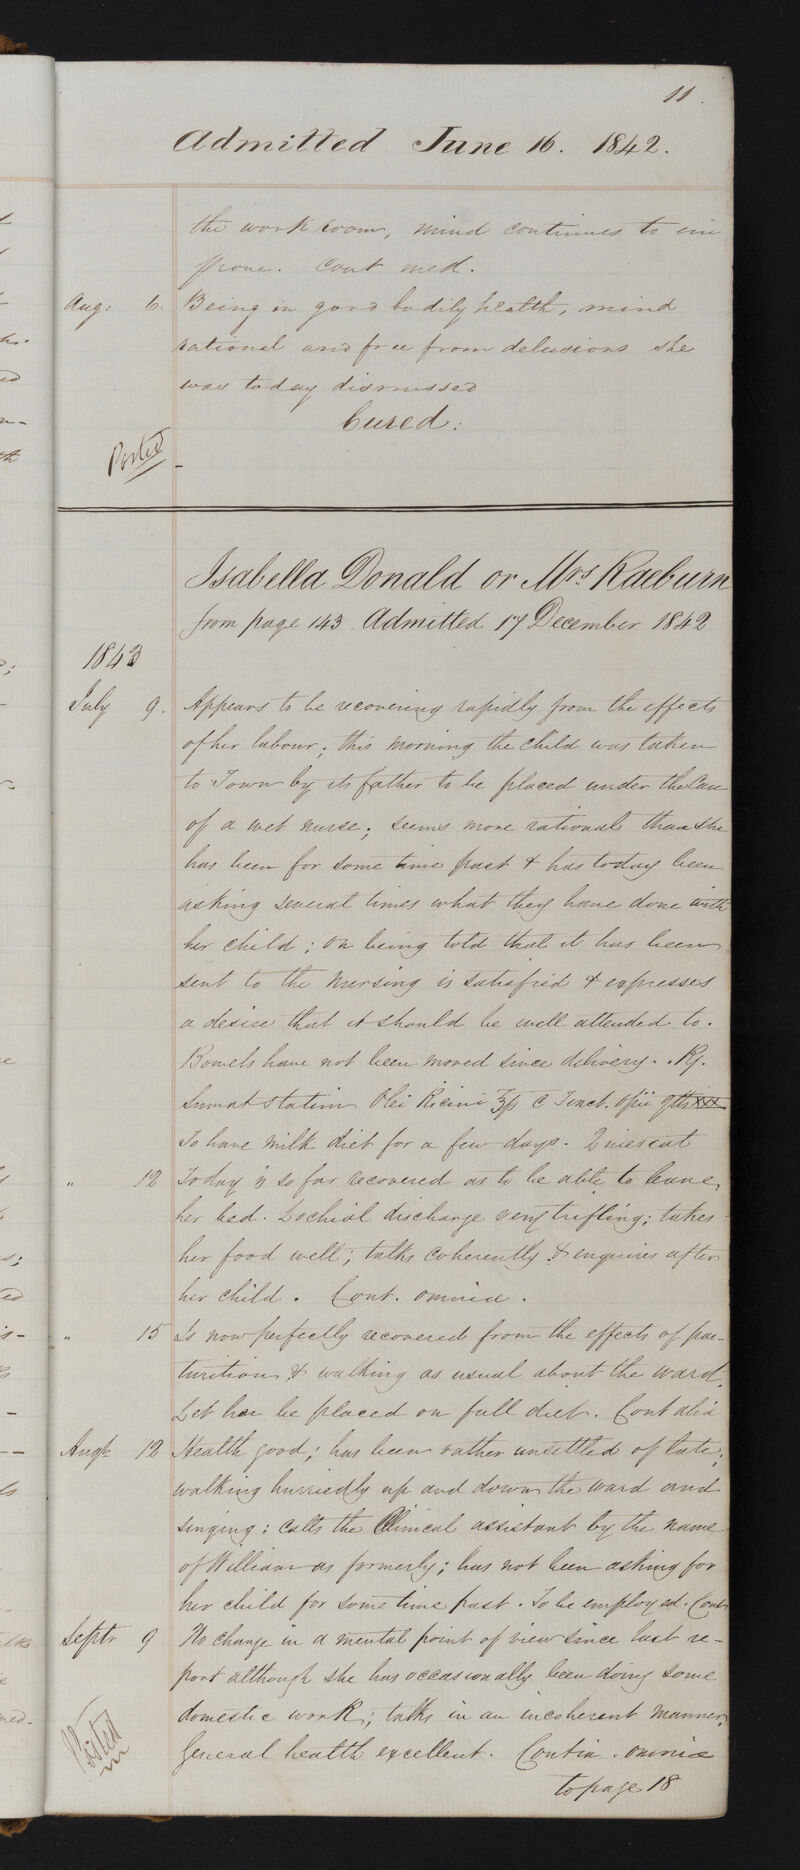 11.
Admitted June 16. 1842.
the work room, mind continues to im
prove. Cont med.
Aug: 6. Being in good bodily health, mind
rational and free from delusions she
was today dismissed
Cured:
Posted
Isabella Donald or Mrs. Raeburn
from page 143 Admitted 17 December 1842
1843
July 9. Appears to be recovering rapidly from the effects
of her labour; this morning the child was taken
to Town by its father to be placed under the Care
of a wet nurse; seems more rational than she
has been for some time past & has today been
asking several times what they have done with
her child; on being told that it has been
sent to the nursing is satisfied & expresses
a desire that it should be well attended to.
Bowels have not been moved since delivery. Rj.
Sumat statim Olei Ricini ℥fs c Tinct. Opii gtts xxx
To have milk diet for a few days. Quiescat
" 12 Today is so far recovered as to be able to leave
her bed. Lochial discharge very trifling; takes
her food well; talks coherently & enquires after
her child. Cont. omnia.
" 15 Is now perfectly recovered from the effects of par-
turition & walking as usual about the ward.
Let her be placed on full diet. Cont alia
Augt 12 Health good; has been rather unsettled of late;
walking hurriedly up and down the ward and
singing: calls the Clinical assistant by the name
of William as formerly; has not been asking for
her child for some time past. To be employed. Cont
Septr 9 No change in a mental point of view since last re-
port although she has occasionally been doing some
domestic work; talks in an incoherent manner.
General health excellent. Contin. omnia
to page 18
Posted